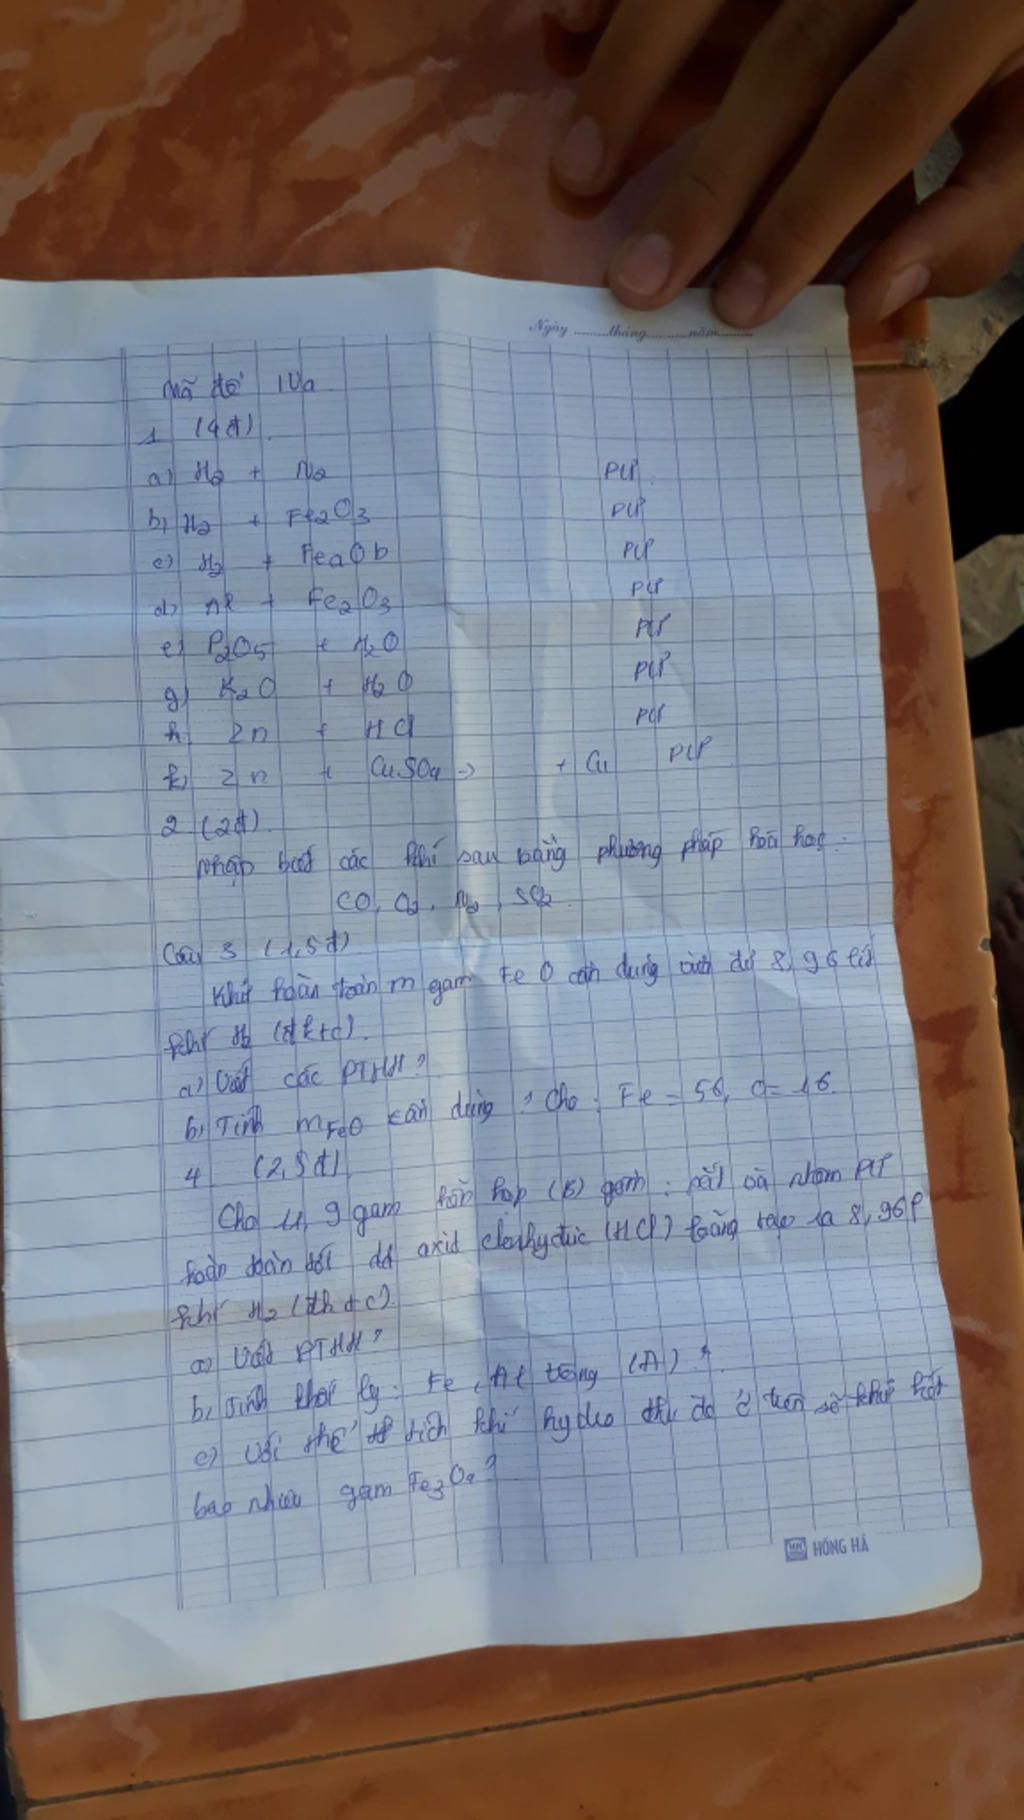 Ngày ........tháng........năm........
Mã đề IVa
1 (4đ).
a) H2 + N2 PƯ.
b) H2 + Fe2O3 PƯ
c) H2 + FeaOb PƯ
d) Al + Fe2O3 PƯ
e) P2O5 + H2O PƯ
g) K2O + H2O PƯ
h) Zn + HCl PƯ
k) Zn + CuSO4 → + Cu PƯ
2 (2đ).
Nhận biết các khí sau bằng phương pháp hóa học:
CO, O2, N2, SO2.
Câu 3 (1,5đ)
Khử hoàn toàn m gam FeO cần dùng vừa đủ 8,96 lít
khí H2 (đktc).
a) Viết các PTHH?
b) Tính mFeO cần dùng? Cho: Fe = 56, O = 16.
4 (2,5đ)
Cho 11,9 gam hỗn hợp (B) gồm: sắt và nhôm PƯ
hoàn toàn với dd axid clohyđric (HCl) loãng tạo ra 8,96l
khí H2 (đktc).
a) Viết PTHH?
b) Tính khối lg: Fe, Al trong (A)?
c) Với thể tích khí hyđro thu đc ở trên sẽ khử hết
bao nhiêu gam Fe3O4?
HH HỒNG HÀ